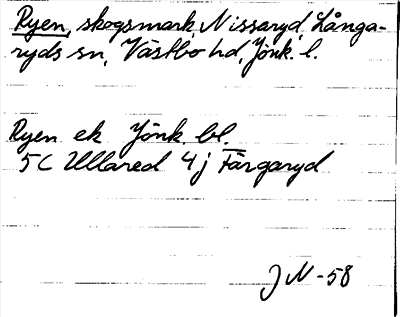 Ryen, skogsmark, Nissaryd, Långa-
ryds sn, Västbo hd, Jönk. l.
Ryen ek Jönk. bl.
5C Ullared 4j Färgaryd
JN-58